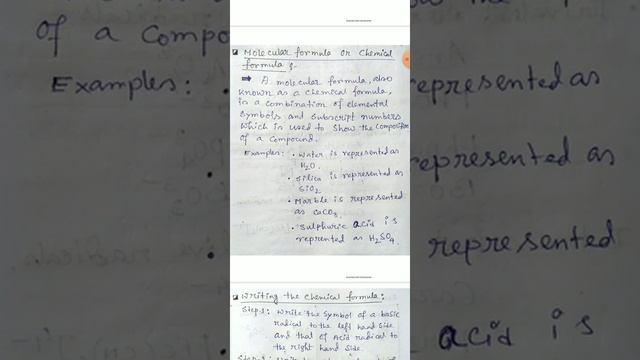 Molecular formula or Chemical
formula :-
⇒ A molecular formula, also
known as a chemical formula,
is a combination of elemental
symbols and subscript numbers
which is used to show the composition
of a compound.
Examples: • Water is represented as
H₂O.
• Silica is represented as
SiO₂.
• Marble is represented
as CaCO₃.
• Sulphuric acid is
reprented as H₂SO₄.
Writing the chemical formula:
Step-1: Write the symbol of a basic
radical to the left hand side
and that of Acid radical to
the right hand side.
of a compou
Examples:
represented as
epresented as
represented
acid is